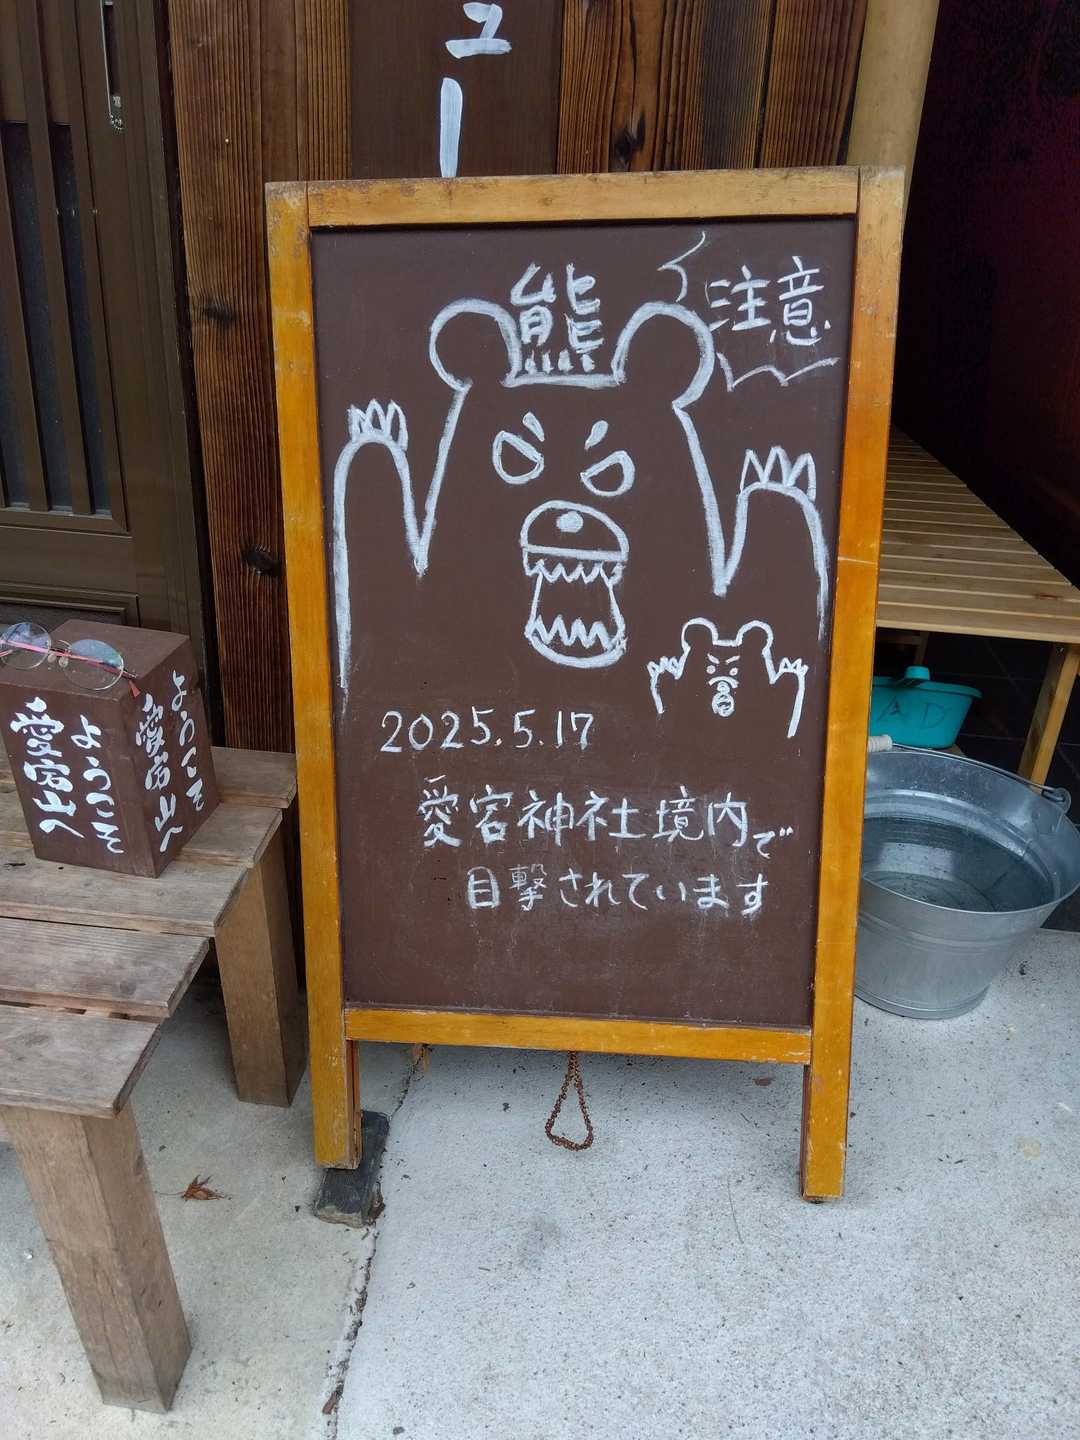 ュー
熊
注意
2025.5.17
愛宕神社境内で
目撃されています
ようこそ
愛宕山へ
ようこそ
愛宕山へ